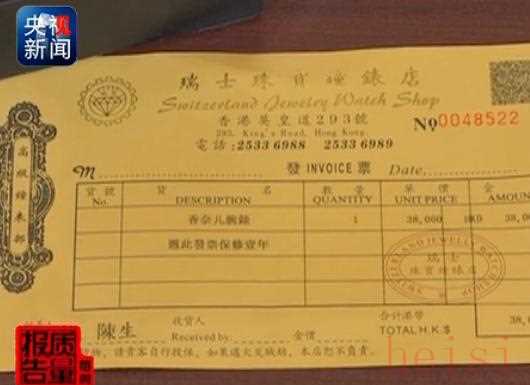 央视
新闻
瑞士珠寶鐘錶店
Switzerland Jewelry Watch Shop
香港英皇道293號
293, King's Road, Hong Kong.
電話:2533 6988 2533 6989
No 0048522
高級鐘表部
M
發 INVOICE 票
Date
貨號 貨名 數量 單價 金
No. DESCRIPTION QUANTITY UNIT PRICE AMOUN
香奈儿腕錶 1 38,000 HKD 38,
憑此發票保修壹年
SWITZERLAND JEWELRY WATCH SHOP
瑞士
珠寶鐘錶店
陳生
收貨人
Received by:
金價
合計港幣
TOTAL H.K.$ 38,
物,請貴客自行投保,如果遇火災賊劫,本店恕不負責.
质量
报告
heisi